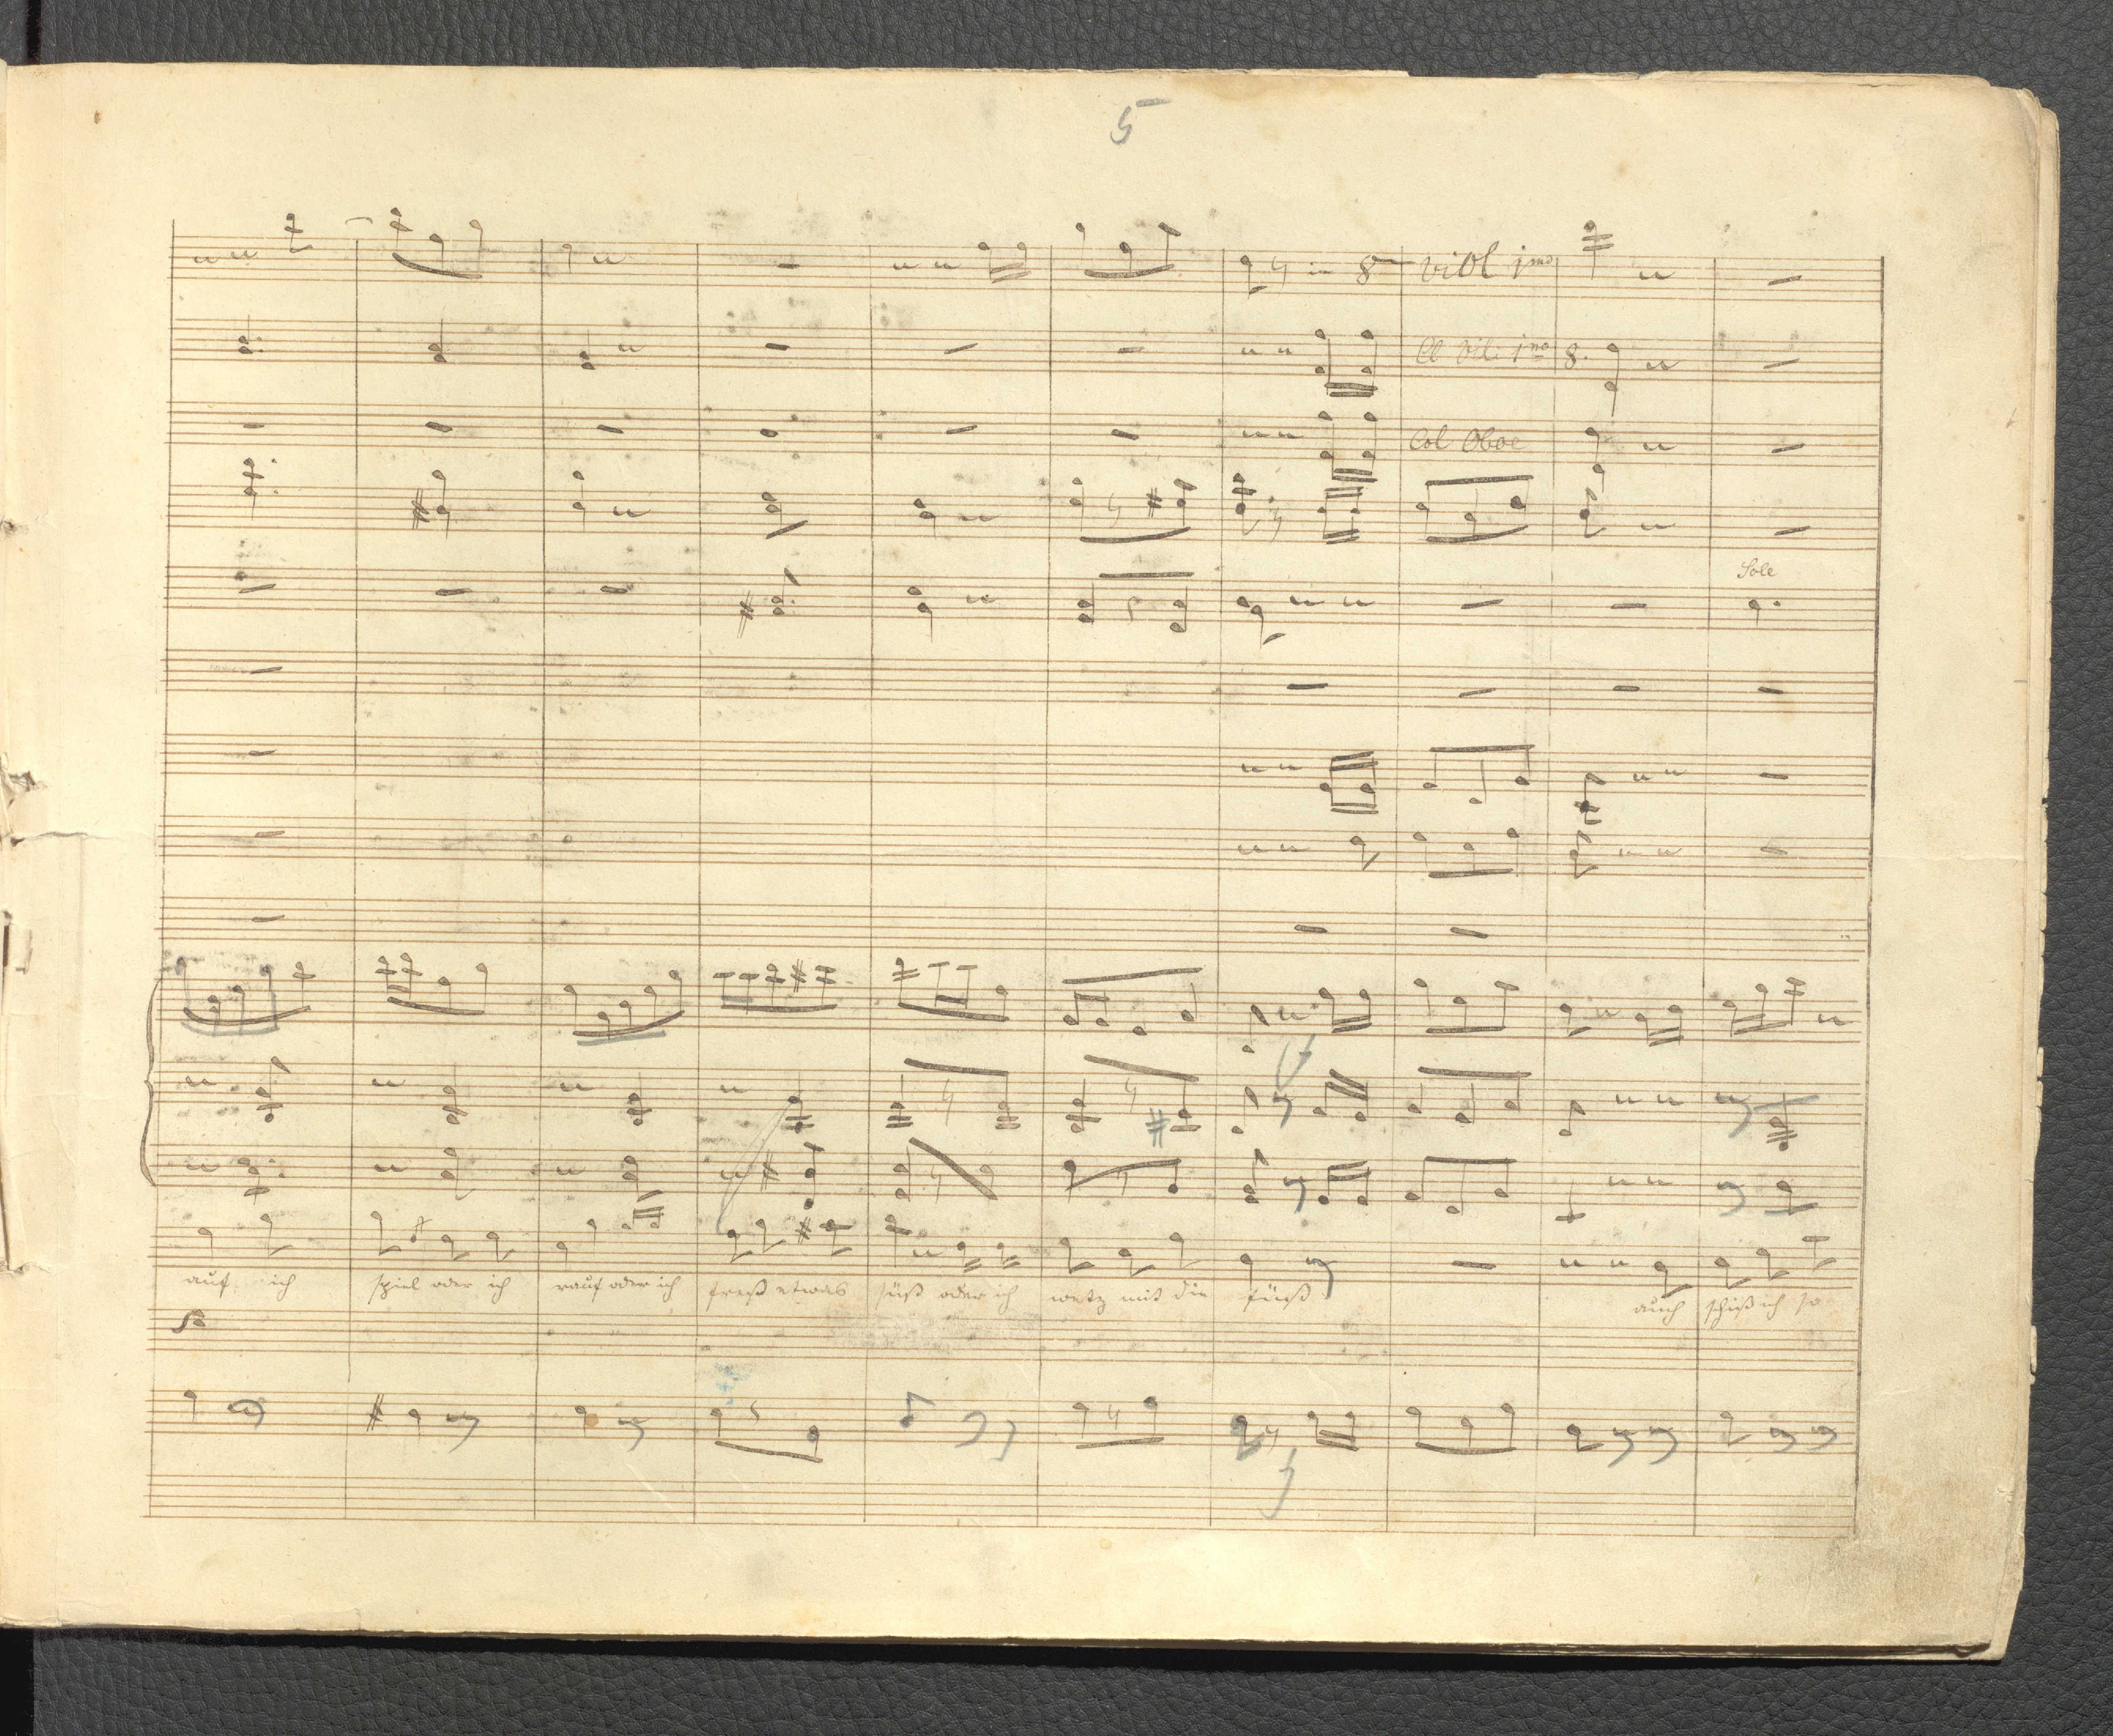 5
in 8 viol 1mo
Cl Viol: 1mo 8.
Col Oboe
Solo
auf ich spiel oder ich rauf oder ich freß etwas süß oder ich wetz mit die füeß auch schieß ich so